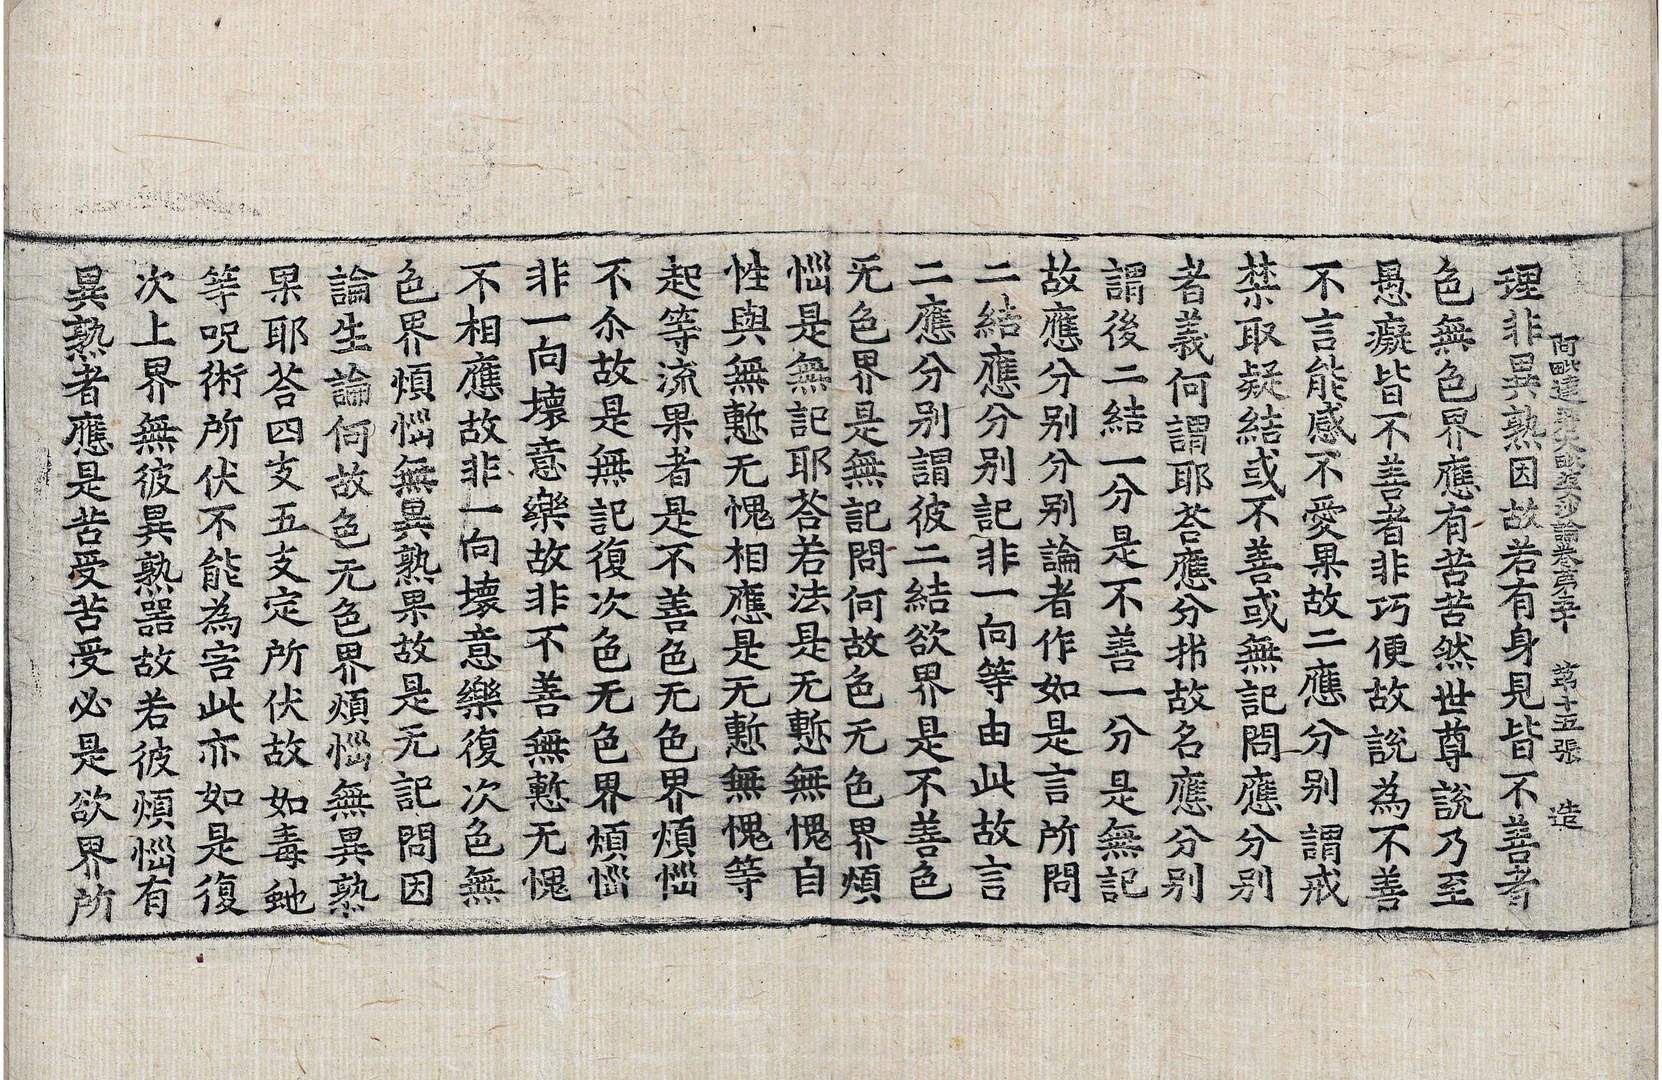 阿毗達磨大毗婆沙論卷第五十 第十五張 造
理非異熟因故若有身見皆不善者
色無色界應有苦苦然世尊說乃至
愚癡皆不善者非巧便故說為不善
不言能感不愛果故二應分別謂戒
禁取疑結或不善或無記問應分別
者義何謂耶荅應分析故名應分別
謂後二結一分是不善一分是無記
故應分別分別論者作如是言所問
二結應分別記非一向等由此故言
二應分別謂彼二結欲界是不善色
无色界是無記問何故色无色界煩
惱是無記耶荅若法是无慙無愧自
性與無慙无愧相應是无慙無愧等
起等流果者是不善色无色界煩惱
不尒故是無記復次色无色界煩惱
非一向壞意樂故非不善無慙无愧
不相應故非一向壞意樂復次色無
色界煩惱無異熟果故是无記問因
論生論何故色无色界煩惱無異熟
果耶荅四支五支定所伏故如毒虵
等呪術所伏不能為害此亦如是復
次上界無彼異熟器故若彼煩惱有
異熟者應是苦受苦受必是欲界所